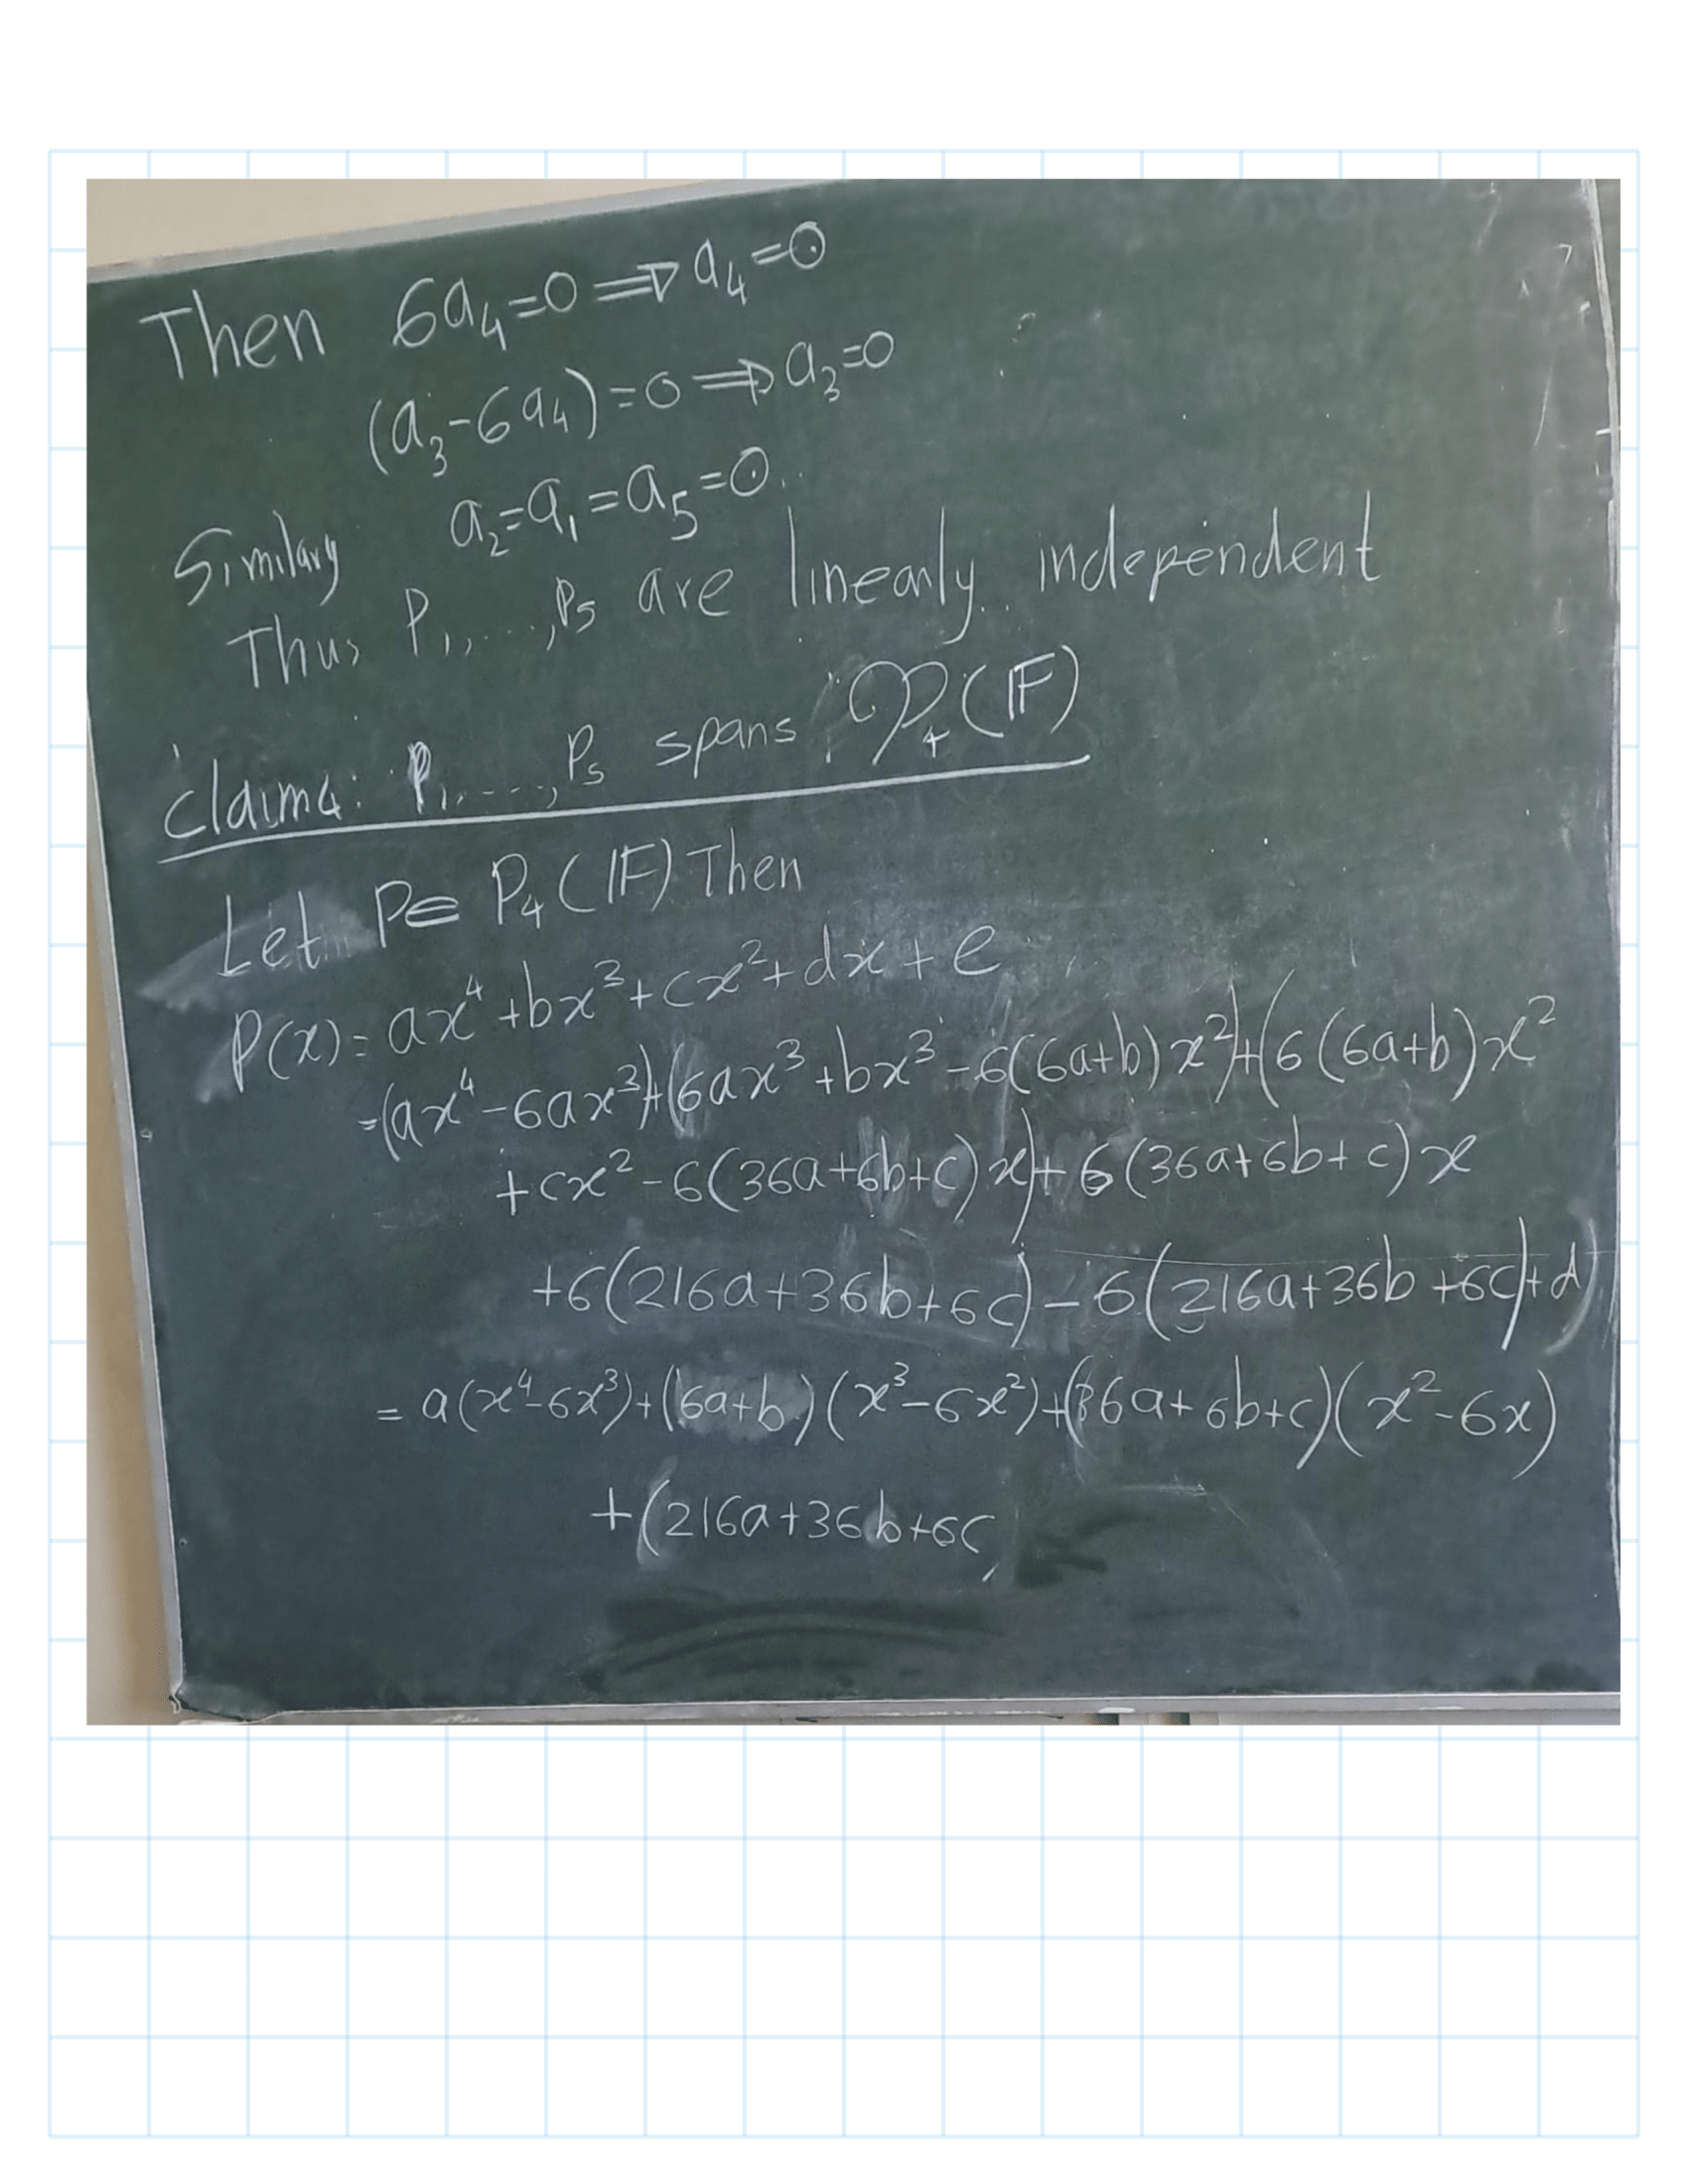 Then 6a₄=0 ⟹ a₄=0
(a₃-6a₄)=0 ⟹ a₃=0
Similary a₂=a₁=a₅=0
Thus P₁,....,P₅ are linearly independent
claim4: P₁,---,P₅ spans 𝒫₄(𝔽)
Let P∈ P₄(𝔽) Then
P(x)= ax⁴+bx³+cx²+dx+e
=(ax⁴-6ax³)+(6ax³+bx³-6(6a+b)x²)+(6(6a+b)x²
+cx²-6(36a+6b+c)x)+6(36a+6b+c)x
+6(216a+36b+6c)-6(216a+36b+6c)+d)
= a(x⁴-6x³)+(6a+b)(x³-6x²)+(36a+6b+c)(x²-6x)
+(216a+36b+6c